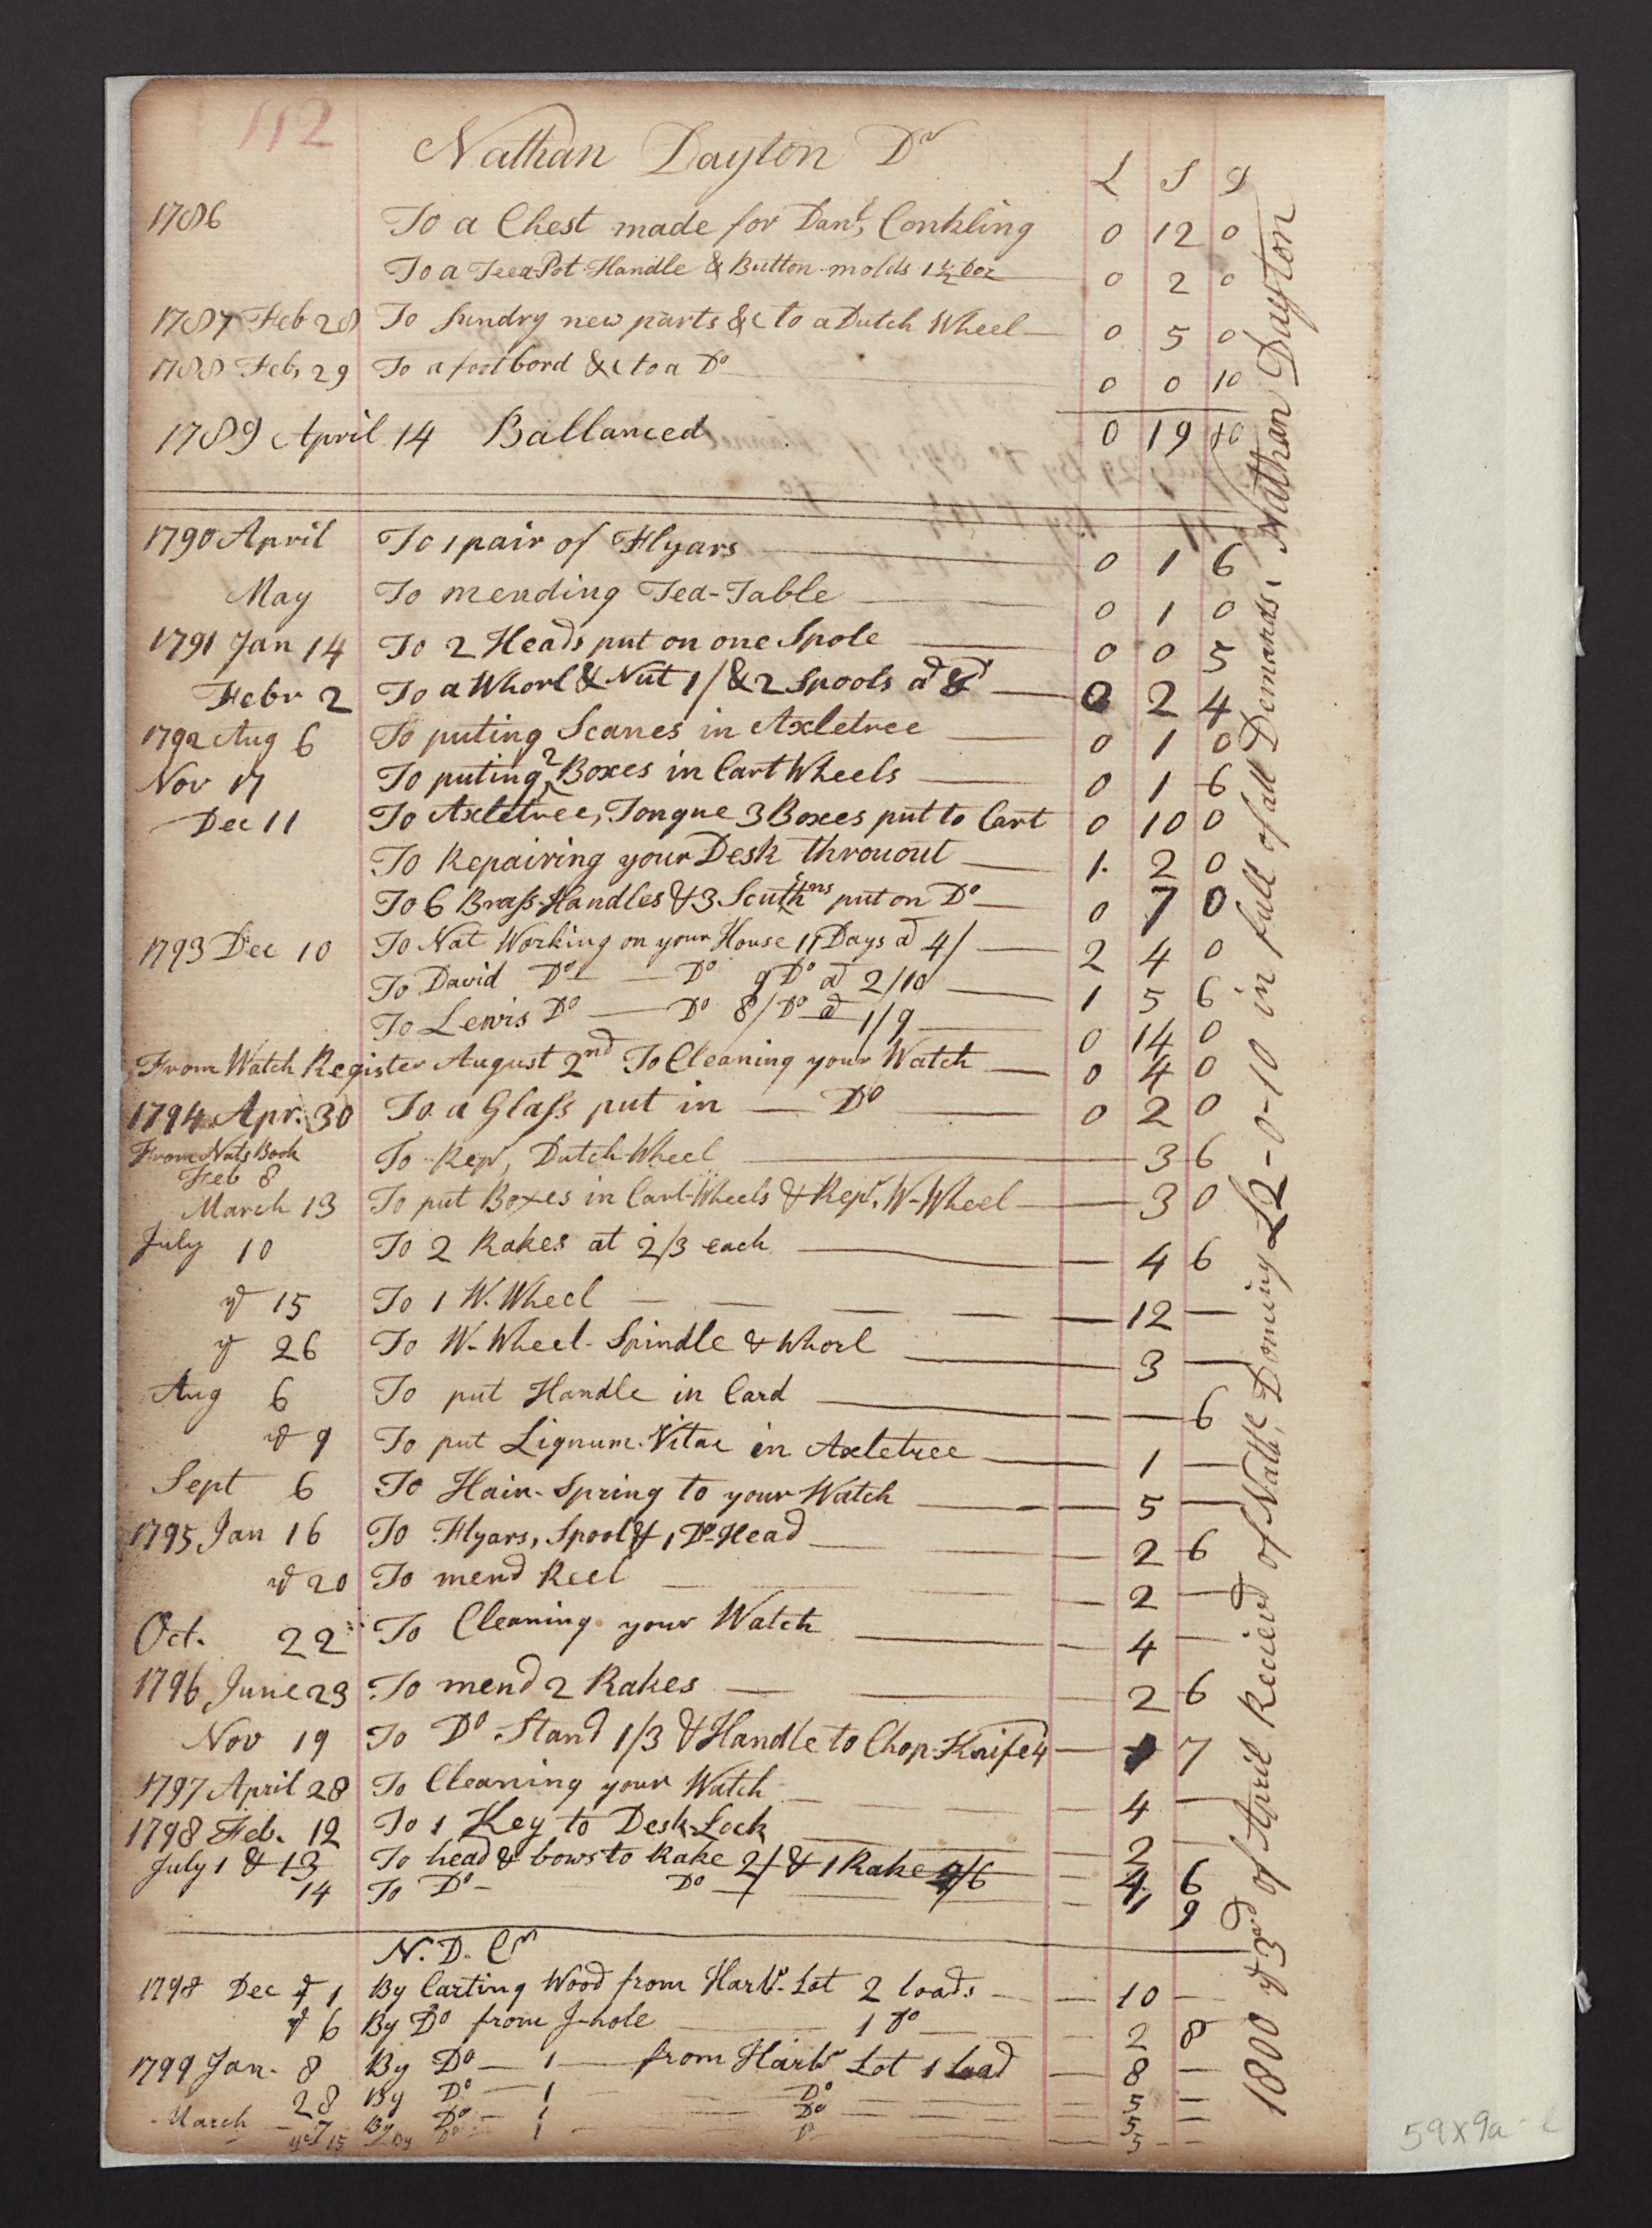 112
Nathan Dayton Dr
L S D
1786 To a Chest made for Danl, Conkling 0 12 0
To a Teea-Pot Handle & Button molds 1 1/2 Doz 0 2 0
1787 Feb 28 To Sundry new parts &c to a Dutch Wheel 0 5 0
1788 Feb, 29 To a foot bord &c to a Do 0 0 10
1789 April 14 Ballanced 0 19 10
1790 April To 1 pair of Flyars 0 1 6
May To mending Tea-Table 0 1 0
1791 Jan 14 To 2 Heads put on one Spole 0 0 5
Febr 2 To a Whorl & Nut 1/ & 2 Spools a 8d 0 2 4
1792 Aug 6 To puting Scanes in Axletree 0 1 0
Nov 17 To puting 2 Boxes in Cart Wheels 0 1 6
Dec 11 To Axletree, Tongue 3 Boxes put to Cart 0 10 0
To Repairing your Desk throuout 1. 2 0
To 6 Brass-Handles & 3 Scutchns put on Do 0 7 0
1793 Dec 10 To Nat Working on your House 11 Days a 4/ 2 4 0
To David Do Do 9 Do a 2/10 1 5 6
To Lewis Do Do 8/Do a 1/9 0 14 0
From Watch Register August 2nd To Cleaning your Watch 0 4 0
1794 Apr. 30 To a Glass put in Do 0 2 0
From Nats Book
Feb 8 To Repr, Dutch-Wheel 3 6
March 13 To put Boxes in Cart-Wheels & Repr, W-Wheel 3 0
July 10 To 2 Rakes at 2/3 each 4 6
yd 15 To 1 W. Wheel 12 —
yd 26 To W-Wheel-Spindle & Whorl 3 —
Aug 6 To put Handle in Card — 6
yd 9 To put Lignum-Vitae in Axletree 1 —
Sept 6 To Hair-Spring to your Watch 5 —
1795 Jan 16 To Flyars, Spool & 1 Do-Head 2 6
yd 20 To mend Reel 2 —
Oct. 22 To Cleaning your Watch 4 —
1796 June 23 To mend 2 Rakes 2 6
Nov 19 To Do Stand 1/3 & Handle to Chop-Knife 4 1 7
1797 April 28 To Cleaning your Watch 4 —
1798 Feb. 12 To 1 Key to Desk-Lock 2 —
July 1 & 13 To head & bows to Rake 2/ & 1 Rake 2/6 4 6
14 To Do Do 1 9
N. D. Cr
1798 Dec yd 1 By Carting Wood from Harbr-Lot 2 loads 10 —
yd 6 By Do from J-hole 1 Do 2 8
1799 Jan. 8 By Do 1 from Harbr Lot 1 load 8 —
28 By Do 1 Do 5 —
March 7 By Do 1 Do 5 —
yd 15 By Do 1 Do 5 —
1800 yd 3rd of April Recievd of Nathl, Doming £2-0-10 in full of all Demands, Nathan Dayton
59x9a-